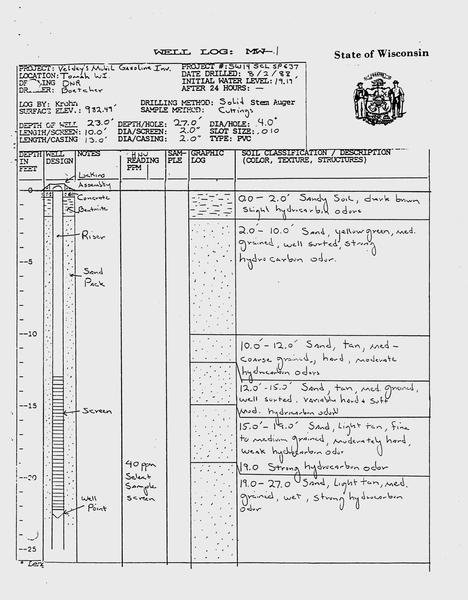 WELL LOG: MW-1
State of Wisconsin
PROJECT: Velday's Mobil Gasoline Inv.
PROJECT #: SW14 SCL SPC37
LOCATION: Tomah WI.
DATE DRILLED: 8/2/88
DNR
INITIAL WATER LEVEL: 19.17'
Boetcher
AFTER 24 HOURS: —
LOG BY: Krohn
DRILLING METHOD: Solid Stem Auger
SURFACE ELEV.: 982.47'
SAMPLE METHOD: Cuttings
DEPTH OF WELL 23.0' DEPTH/HOLE: 27.0' DIA/HOLE: 4.0"
LENGTH/SCREEN: 10.0' DIA/SCREEN: 2.0" SLOT SIZE: .010
LENGTH/CASING: 13.0' DIA/CASING: 2.0" TYPE: PVC
DEPTH IN FEET
WELL DESIGN
NOTES
HNU READING PPM
SAMPLE
GRAPHIC LOG
SOIL CLASSIFICATION / DESCRIPTION
(COLOR, TEXTURE, STRUCTURES)
Locking
Assembly
0
Concrete
Bentonite
0.0 - 2.0' Sandy Soil, dark brown
slight hydrocarbon odors
Riser
2.0' - 10.0' Sand, yellow green, med.
grained, well sorted, strong
hydrocarbon odor.
-5
Sand
Pack
-10
10.0' - 12.0' Sand, tan, med -
coarse grained, hard, moderate
hydrocarbon odors
12.0' - 15.0' Sand, tan, med. grained,
well sorted, variably hard & soft
Mod. hydrocarbon odor
-15
Screen
15.0' - 19.0' Sand, Light tan, fine
to medium grained, moderately hard,
weak hydrocarbon odor
19.0 Strong hydrocarbon odor
40 ppm
Select
Sample
Screen
19.0 - 27.0' Sand, Light tan, med.
grained, wet, strong hydrocarbon
odor
-20
Well
Point
-25